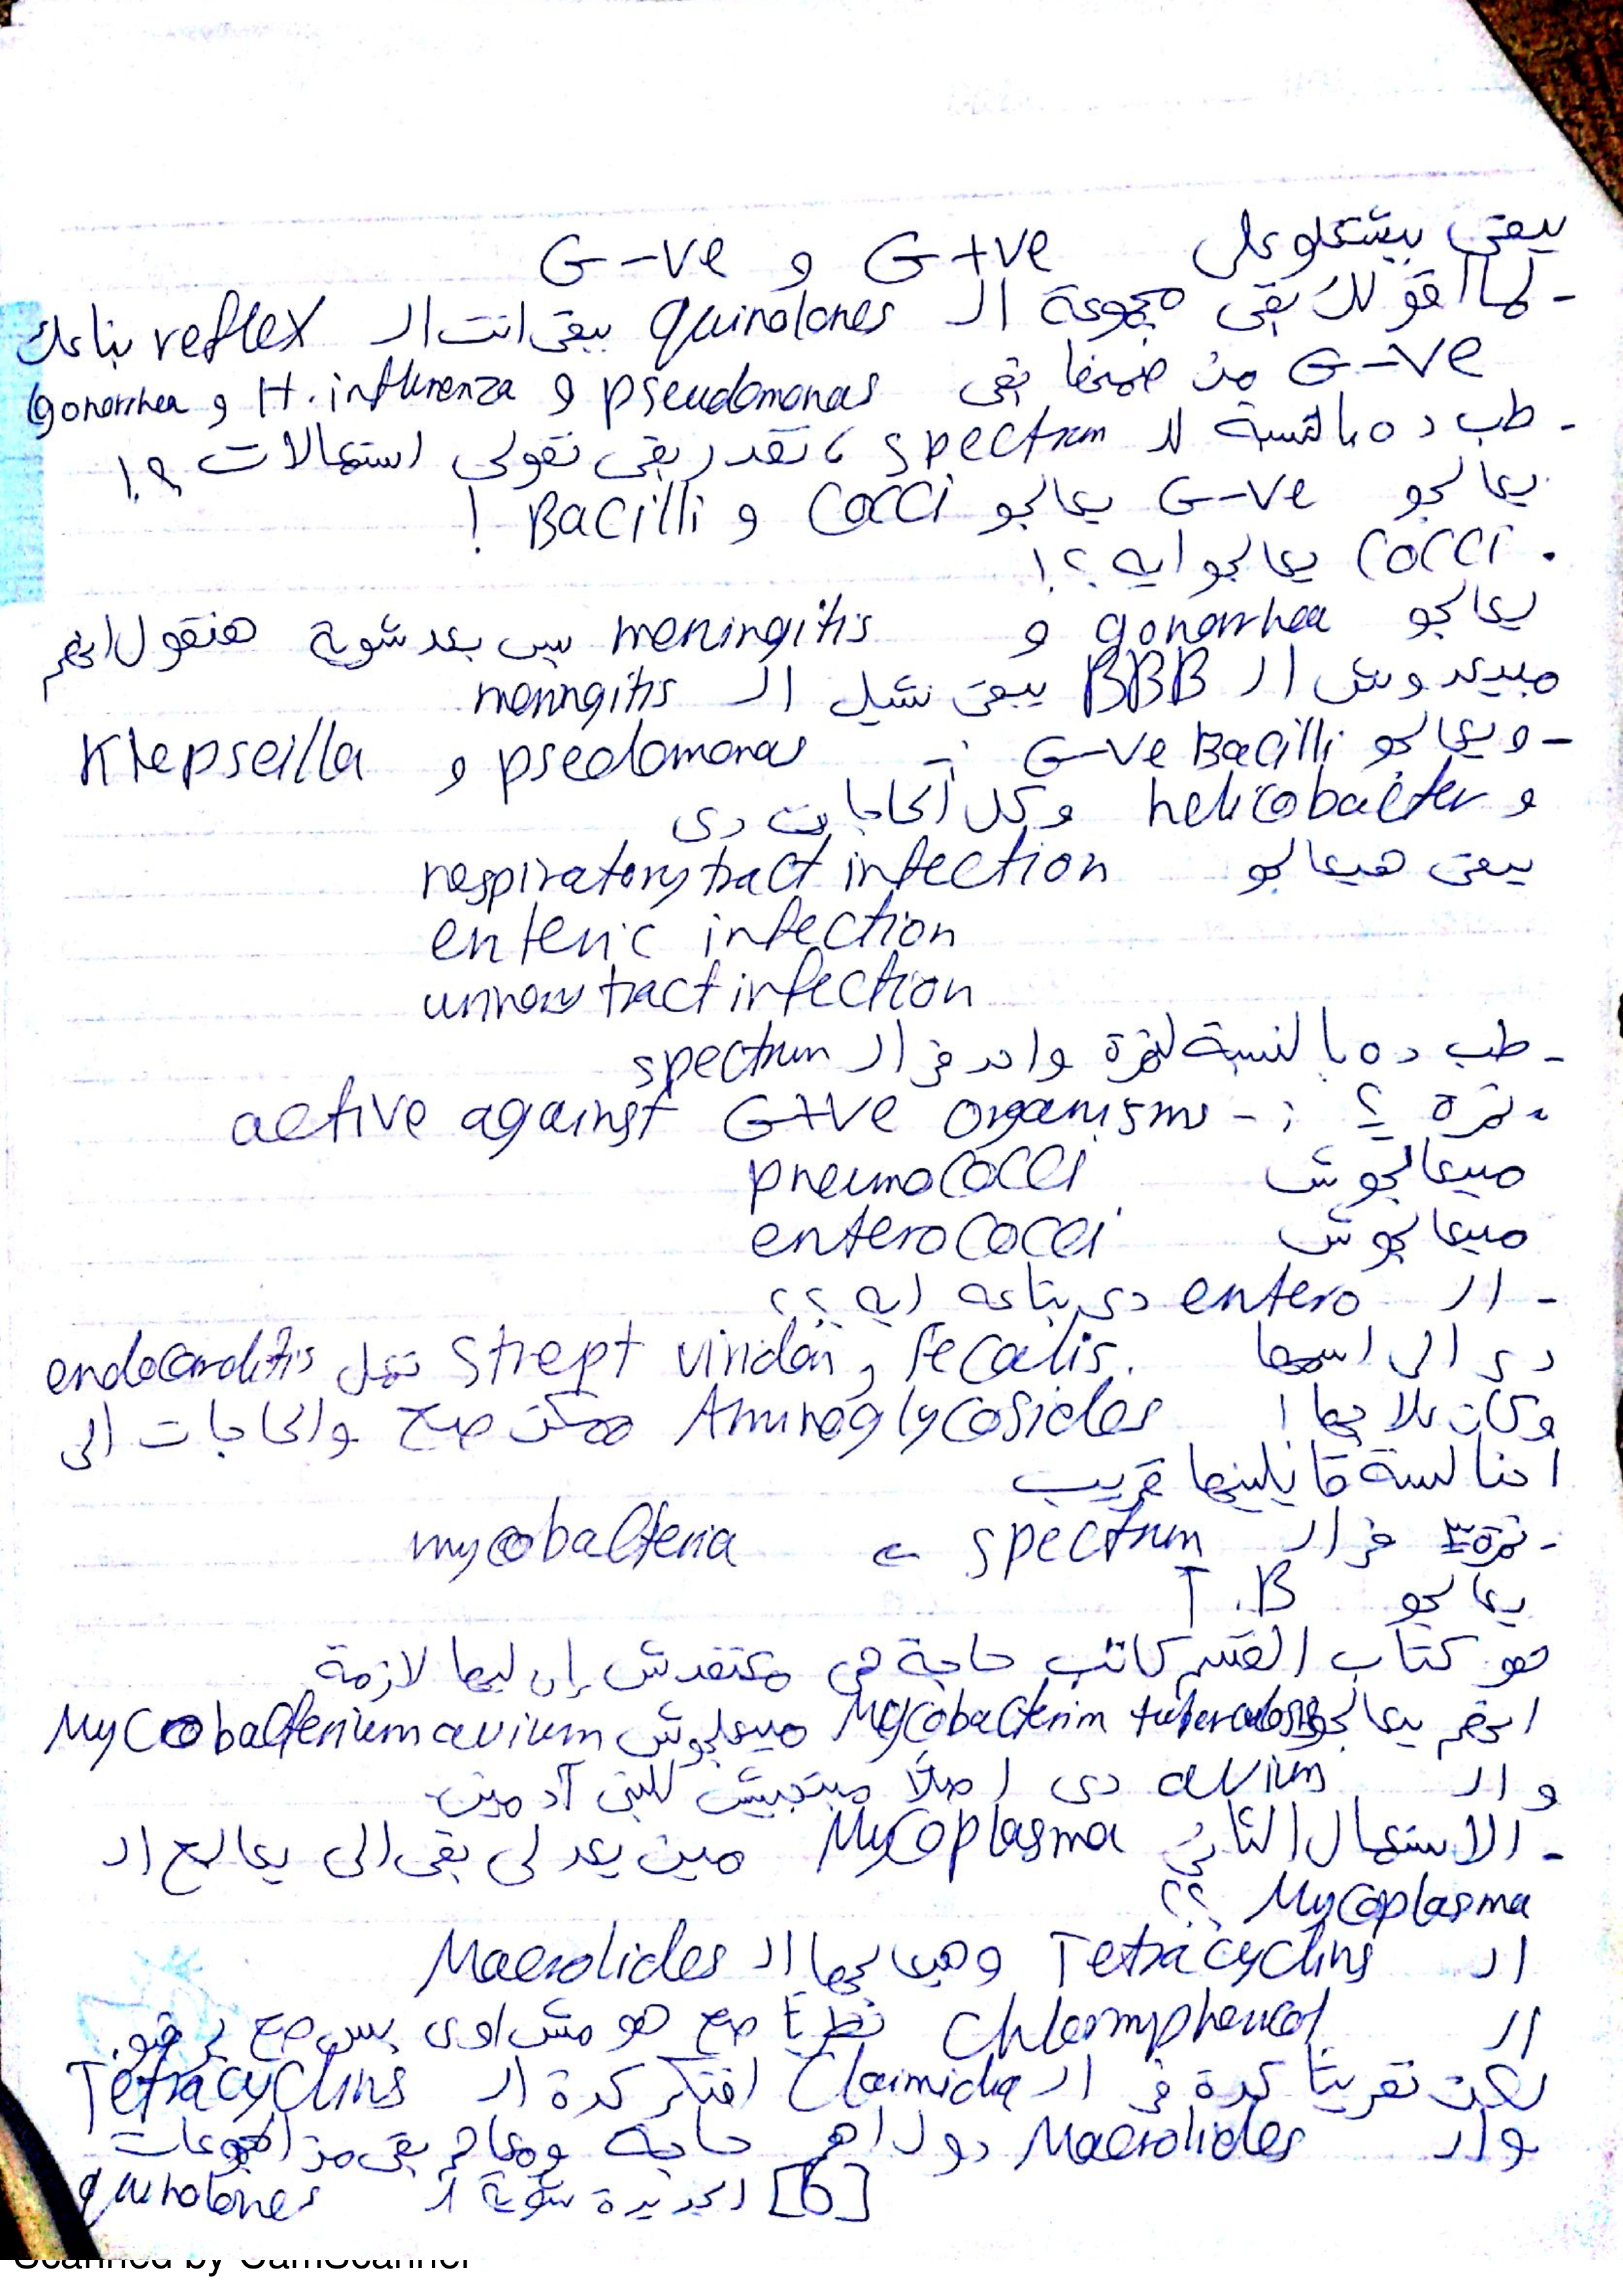 يبقى بيشتغلو على G+ve و G-ve
- لما اقولك بقى مجموعة الـ quinolones يبقى انت الـ reflex بتاعك
G-ve من ضمنها بقى pseudomonas و H. influenza و gonorrhea
- طب ده بالنسبة للـ spectrum ، تقدر بقى تقولى استعمالات ؟!
يعالجو G-ve يعالجو Cocci و Bacilli !
. Cocci يعالجو ايه ؟!
يعالجو gonorrhea و meningitis بس بعد شوية هنقول انهم
مبيعدوش الـ BBB يبقى نشيل الـ meningitis
- ويعالجو G-ve Bacilli :- pseodomonas و Klepseilla
و helicobacter وكل الحاجات دى
يبقى هيعالجو respiratory tract infection
enteric infection
urinary tract infection
- طب ده بالنسبة لنمرة واحد فى الـ spectrum
- نمرة ٢ :- active against G+ve organisms
مبيعالجوش pneumococci
مبيعالجوش enterococci
- الـ entero دى بتاعه ايه ؟؟
دى الى اسمها Strept viridan , fecalis. تعمل endocarditis
وكان علاجها ! Aminoglycosides ممكن صح والحاجات الى
احنا لسة قايلينها قريب
- نمرة ٣ فى الـ spectrum ← mycobacteria
يعالجو T.B
هو كتاب القسم كاتب حاجة هى معتقدش إن ليها لازمة
انهم يعالجو Mycobacterim tuberculosis مبيعالجوش Mycobacterium avium
والـ avium دى اصلاً مبتجيش للبنى آدمين
- الاستعمال الثانى Mycoplasma مين يعدلى بقى الى يعالج الـ
Mycoplasma ؟؟
الـ Tetracyclins وهيعالجها الـ Macrolides
الـ Chloramphenicol نظرياً صح هو مش اوى بس صح برضو.
لكن تقريباً كدة فى الـ Claimidia افتكر كدة الـ Tetracyclins
والـ Macrolides دول اهم حاجه ومعاهم بقى من المجموعات
[6] الجديدة شوية الـ quinolones
Scanned by CamScanner